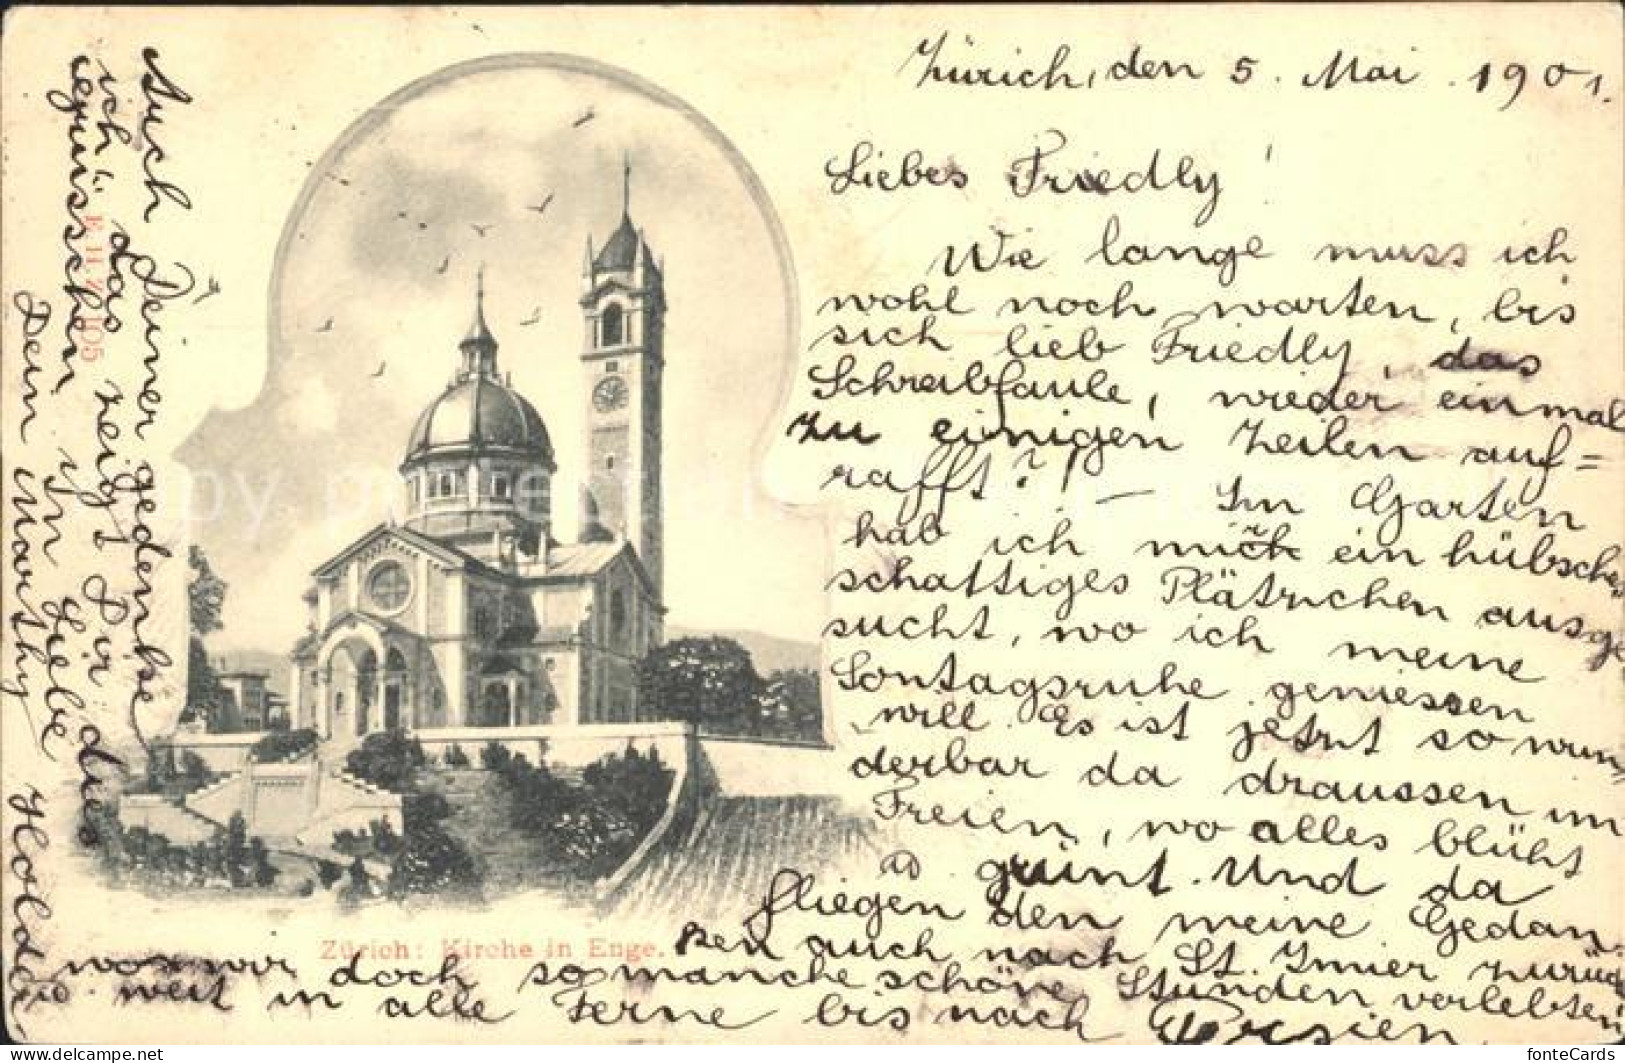 Zürich, den 5. Mai 1901.
Liebes Friedly!
Wie lange muss ich
wohl noch warten, bis
sich lieb Friedly, das
Schreibfaule, wieder einmal
zu einigen Zeilen auf=
rafft?! — Im Garten
hab ich mir ein hübsches
schattiges Plätzchen ausge
sucht, wo ich meine
Sontagsruhe geniessen
will. Es ist jetzt so wun,
derbar da draussen im
Freien, wo alles blüht
u grünt. Und da
fliegen den meine Gedan-
ken auch nach St. Immer zurück
wo wir doch so manche schöne Stunden verlebten
weit in alle Ferne bis nach Persien
Auch Deiner gedenke
ich das zeigt Dir dies
egrüsschen in Liebe
Dein Marthy Holder
E.H.Z. 105
Zürich: Kirche in Enge.
fonteCards